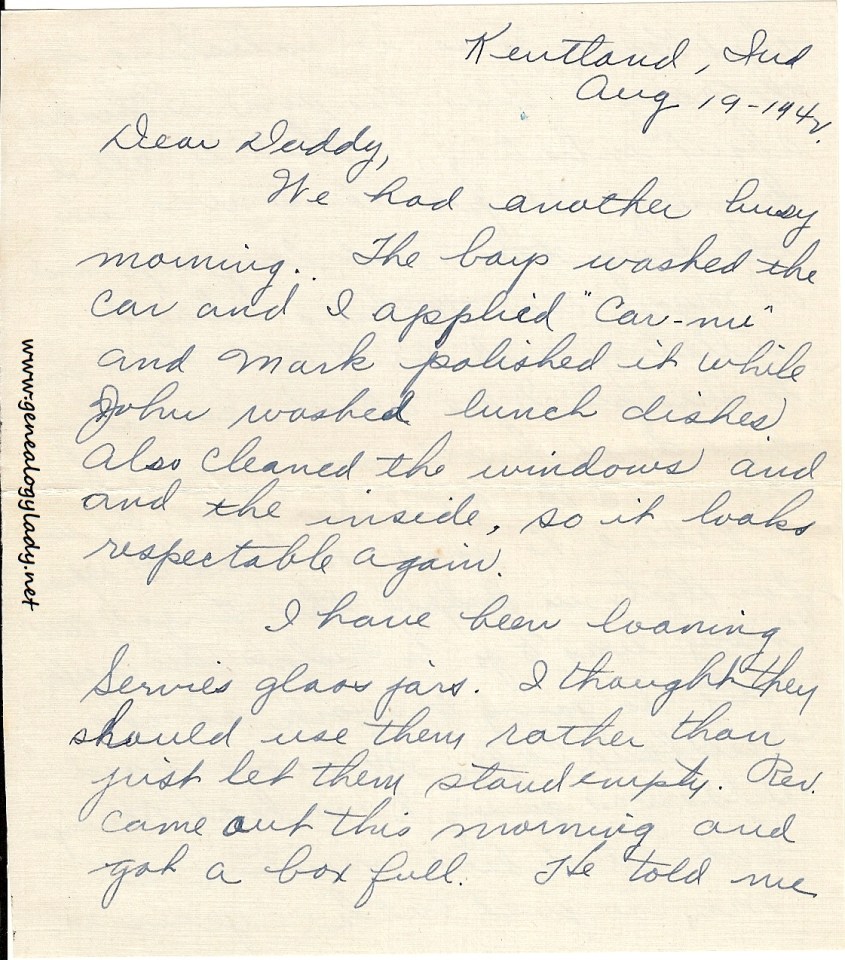 Kentland, Ind
Aug 19-1942.
Dear Daddy,
We had another busy
morning. The boys washed the
car and I applied "Car-nu"
and Mark polished it while
John washed lunch dishes
Also cleaned the windows and
and the inside, so it looks
respectable again.
I have been loaning
Servies glass jars. I thought they
should use them rather than
just let them stand empty. Rev.
came out this morning and
got a box full. He told me
www.genealogylady.net